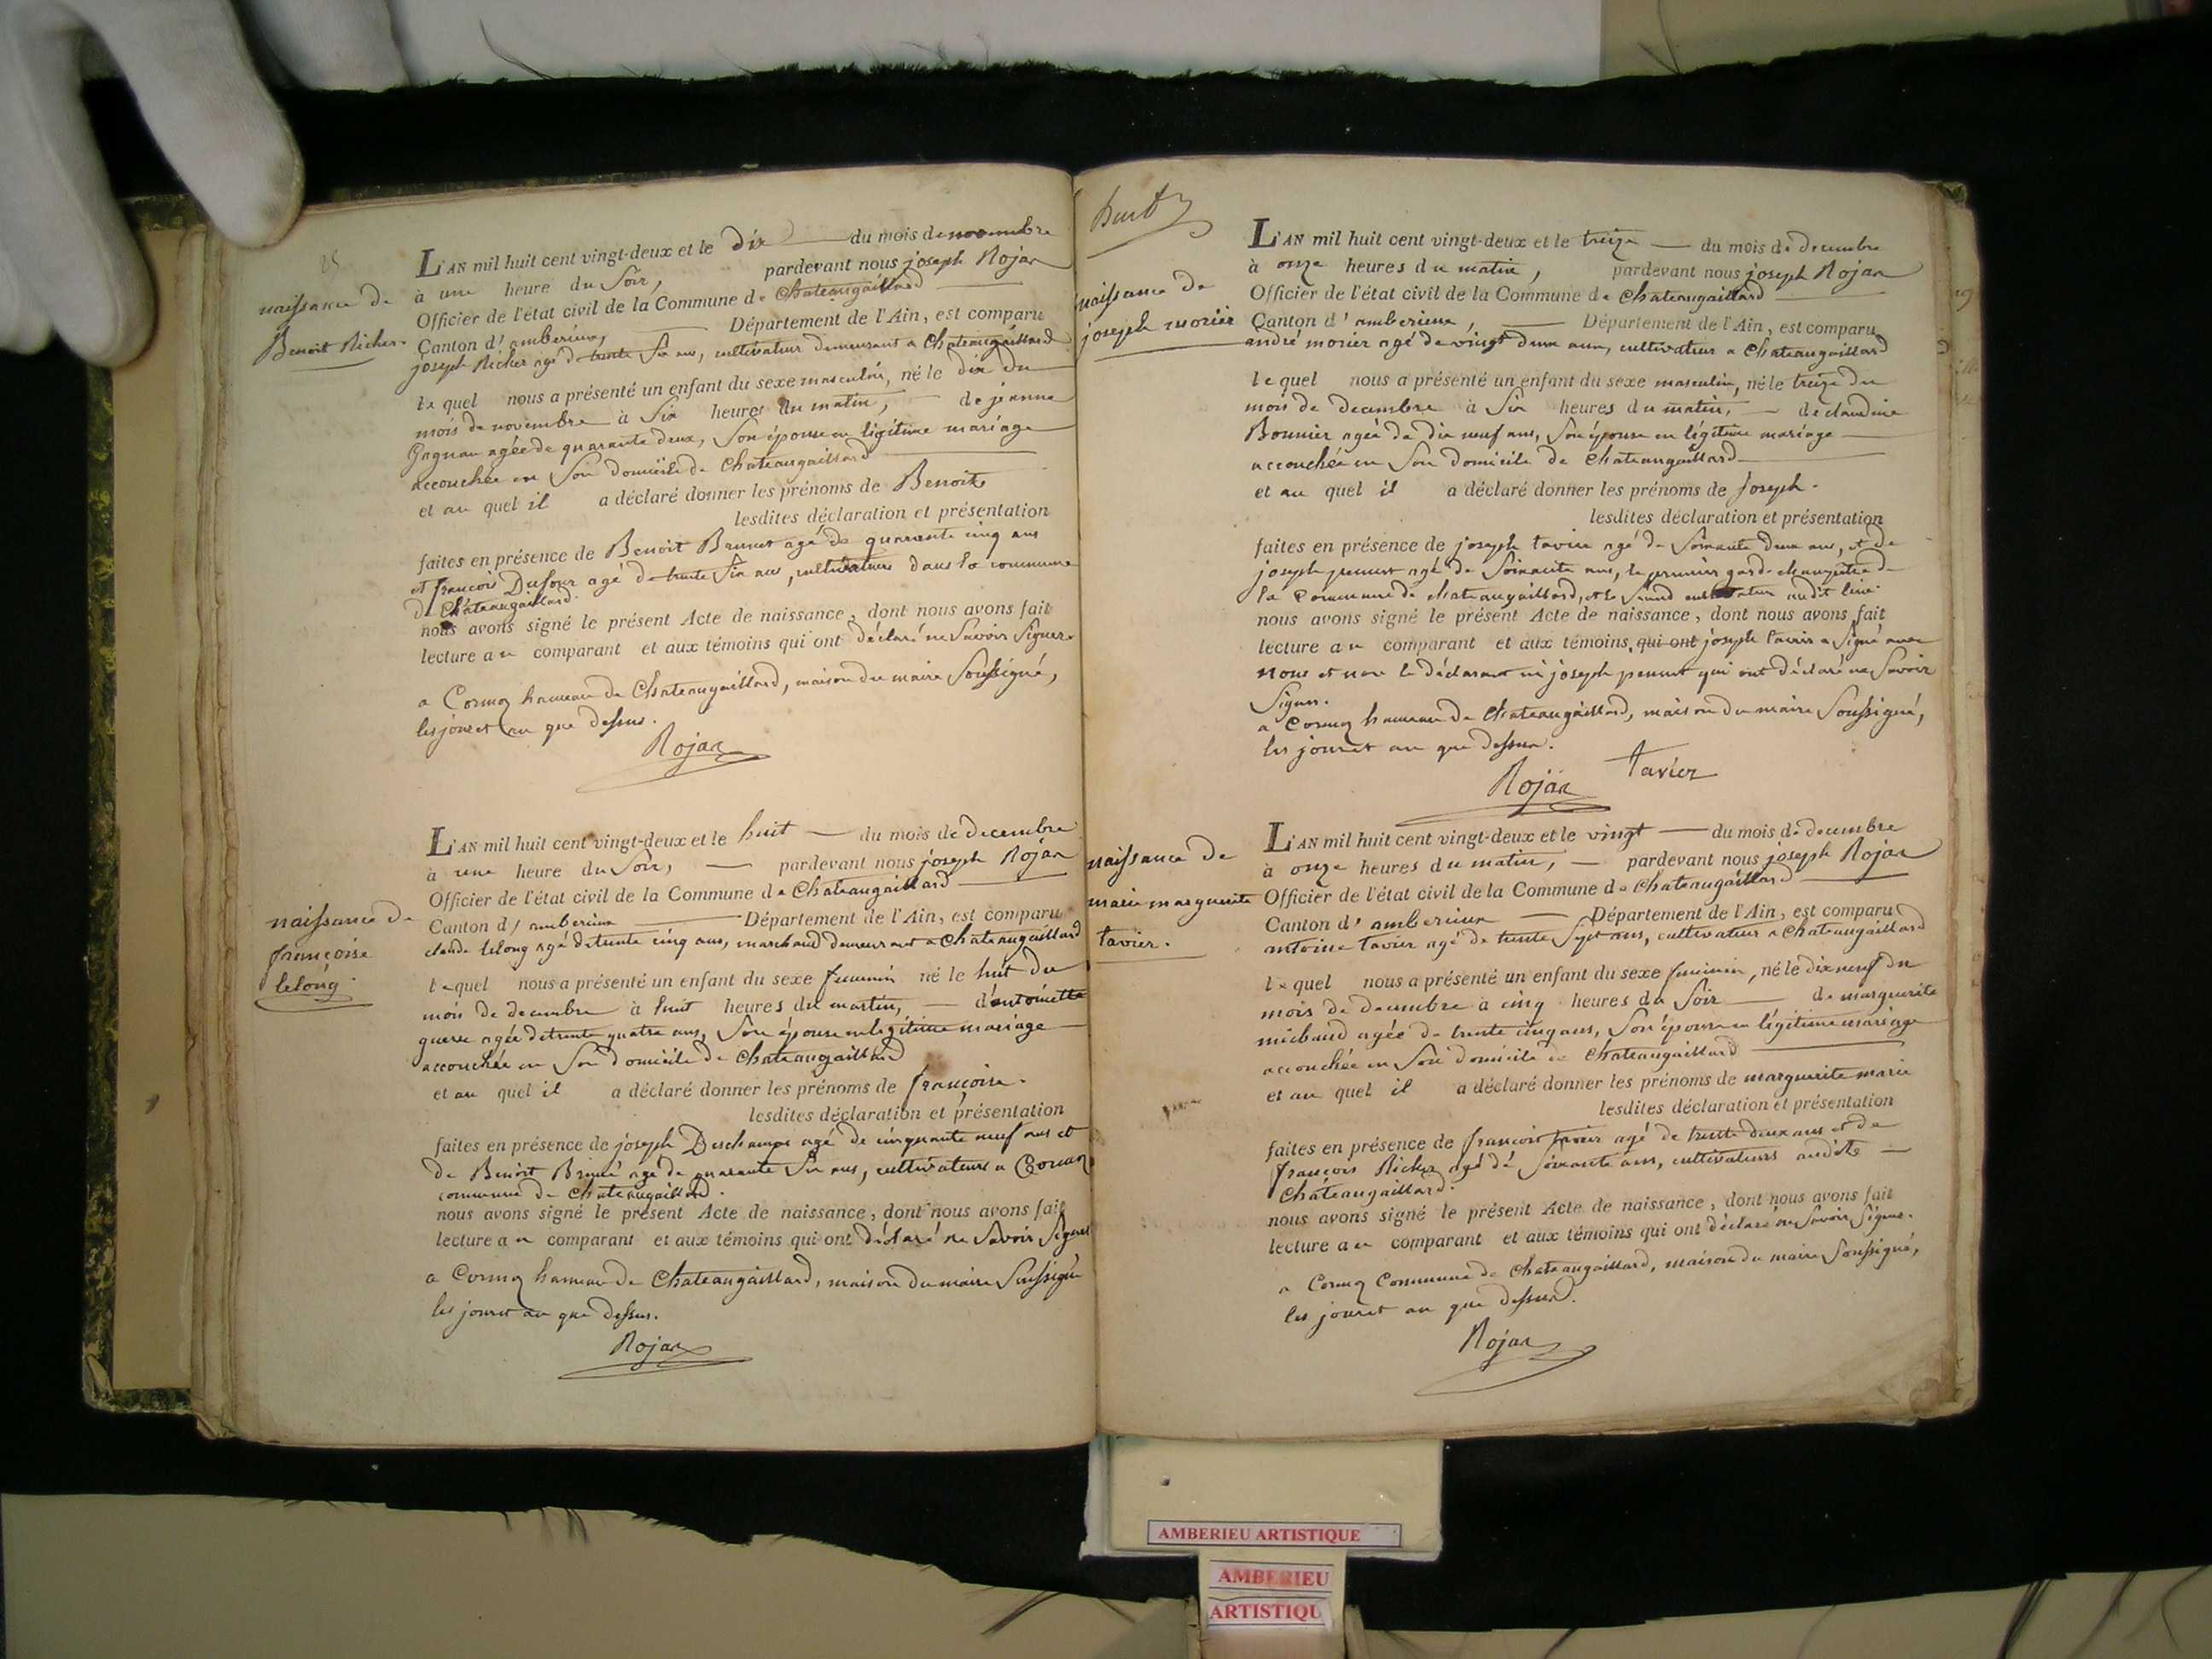 25
naissance de
Benoit Richer.
L'AN mil huit cent vingt-deux et le dix du mois de novembre
à une heure du Soir, pardevant nous joseph Rojan
Officier de l'état civil de la Commune de Chateaugaillard
Canton d'amberieux, Département de l'Ain, est comparu
joseph Richer agé de trente Six ans, cultivateur demeurant a Chateaugaillard
lequel nous a présenté un enfant du sexe masculin, né le dix du
mois de novembre à Six heures du matin, de jeanne
agée de quarante deux, Son épouse en légitime mariage
accouchée en Son domicile de Chateaugaillard
et au quel il a déclaré donner les prénoms de Benoit
lesdites déclaration et présentation
faites en présence de Benoit Brunet agé de quarante cinq ans
et françois Dufour agé de trente Six ans, cultivateurs dans la commune
de Chateaugaillard.
nous avons signé le présent Acte de naissance, dont nous avons fait
lecture au comparant et aux témoins qui ont déclaré ne Savoir Signer.
a Cormoz hameau de Chateaugaillard, maison du maire Soussigné,
les jour et an que dessus.
Rojan
naissance de
françoise
lelong.
L'AN mil huit cent vingt-deux et le huit du mois de decembre
à une heure du Soir, pardevant nous joseph Rojan
Officier de l'état civil de la Commune de Chateaugaillard
Canton d'amberieux Département de l'Ain, est comparu
claude lelong agé de trente cinq ans, marchand demeurant a Chateaugaillard
lequel nous a présenté un enfant du sexe feminin né le huit du
mois de decembre à huit heures du martin, d'antoinette
agée de trente quatre ans, Son épouse en légitime mariage
accouchée en Son domicile de Chateaugaillard
et au quel il a déclaré donner les prénoms de françoise.
lesdites déclaration et présentation
faites en présence de joseph Deschamps agé de cinquante neuf ans et
de Benoit agé de quarante Six ans, cultivateurs a
commune de Chateaugaillard.
nous avons signé le présent Acte de naissance, dont nous avons fait
lecture au comparant et aux témoins qui ont déclaré ne Savoir Signer
a Cormoz hameau de Chateaugaillard, maison du maire Soussigné
les jour et an que dessus.
Rojan
naissance de
joseph morier
L'AN mil huit cent vingt-deux et le treize du mois de decembre
à onze heures du matin, pardevant nous joseph Rojan
Officier de l'état civil de la Commune de Chateaugaillard
Canton d'amberieux, Département de l'Ain, est comparu
andré morier agé de vingt deux ans, cultivateur a Chateaugaillard
lequel nous a présenté un enfant du sexe masculin, né le treize du
mois de decembre à Six heures du matin, de claudine
Bonnier agée de dix neuf ans, Son épouse en légitime mariage
accouchée en Son domicile de Chateaugaillard
et au quel il a déclaré donner les prénoms de Joseph.
lesdites déclaration et présentation
faites en présence de joseph tavier agé de Soixante deux ans, et de
joseph agé de Soixante ans, le premier garde champetre de
la Commune de chateaugaillard, et le Second cultivateur audit lieu.
nous avons signé le présent Acte de naissance, dont nous avons fait
lecture au comparant et aux témoins, qui ont joseph tavier a Signé avec
nous et non le déclarant ni joseph qui ont déclaré ne Savoir
Signer.
a Cormoz hameau de Chateaugaillard, maison du maire Soussigné,
les jour et an que dessus.
Rojan Tavier
naissance de
marie marguerite
tavier.
L'AN mil huit cent vingt-deux et le vingt du mois de decembre
à onze heures du matin, pardevant nous joseph Rojan
Officier de l'état civil de la Commune de Chateaugaillard
Canton d'amberieux Département de l'Ain, est comparu
antoine tavier agé de trente Sept ans, cultivateur a Chateaugaillard
lequel nous a présenté un enfant du sexe feminin, né le dix neuf du
mois de decembre à cinq heures du Soir de marguerite
michaud agée de trente cinq ans, Son épouse en légitime mariage
accouchée en Son domicile de Chateaugaillard
et au quel il a déclaré donner les prénoms de marguerite marie
lesdites déclaration et présentation
faites en présence de françois tavier agé de trente deux ans et de
françois Richer agé de Soixante ans, cultivateurs audit
Chateaugaillard.
nous avons signé le présent Acte de naissance, dont nous avons fait
lecture au comparant et aux témoins qui ont déclaré ne Savoir Signer.
a Cormoz Commune de Chateaugaillard, maison du maire Soussigné,
les jour et an que dessus.
Rojan
AMBERIEU ARTISTIQUE
AMBERIEU
ARTISTIQU